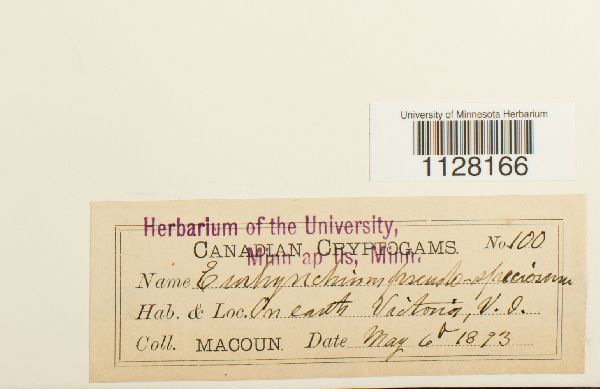 University of Minnesota Herbarium
1128166
Herbarium of the University,
Minn ap lis, Minn.
CANADIAN CRYPTOGAMS. No. 100
Name Eurhynchium pseudo-speciosum
Hab. & Loc. On earth Victoria, V. I.
Coll. MACOUN. Date May 6th 1893